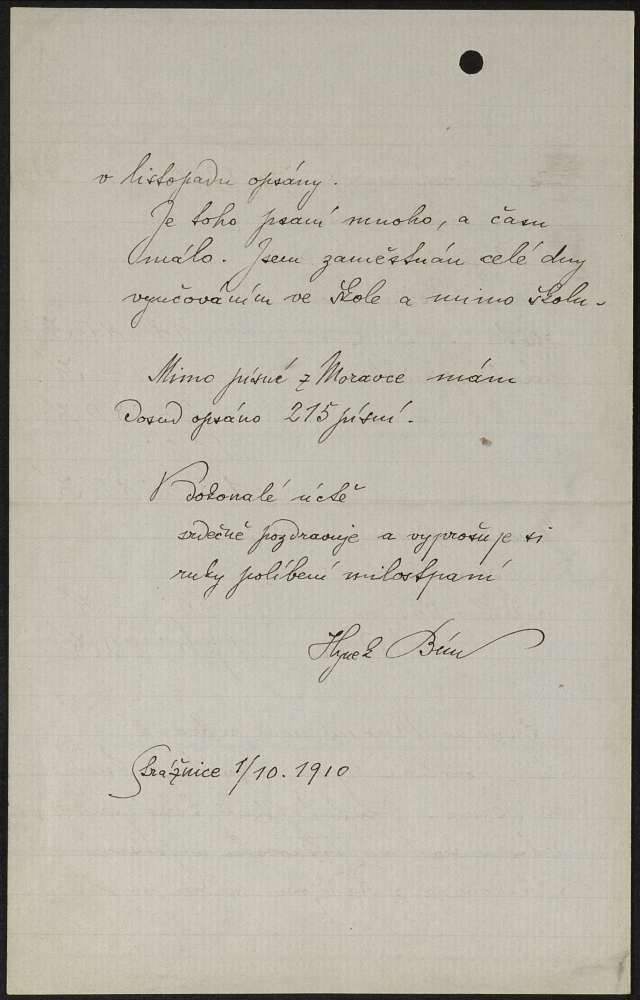 v listopadu opsány.
Je toho psaní mnoho, a času
málo. Jsem zaměstnán celé dny
vyučováním ve škole a mimo školu.
Mimo písně z Moravce mám
dosud opsáno 215 písní.
V dokonalé úctě
srdečně pozdravuje a vyprošuje si
ruky políbení milostpaní
Hynek Bím
Strážnice 1/10. 1910